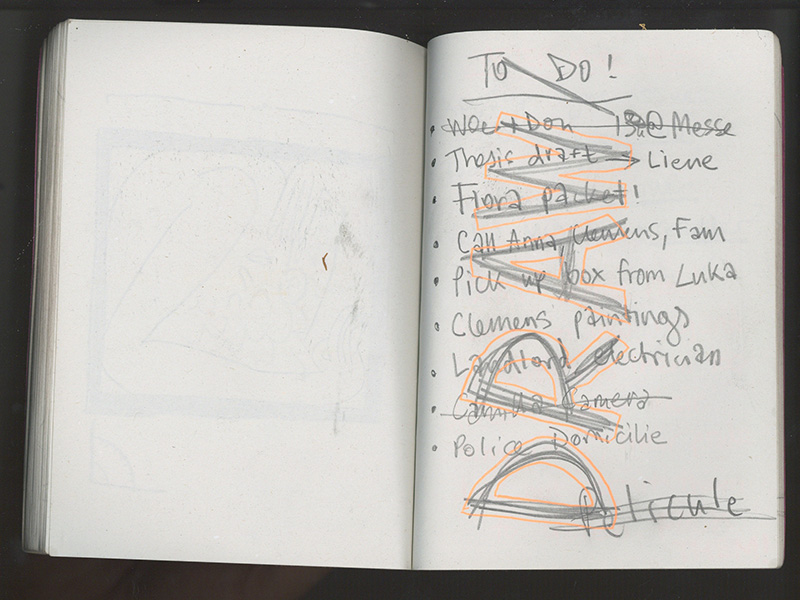 To Do!
Don @ Messe
Thesis draft → Liene
Flora packet!
Call Anna, Clemens, Fam
Pick up box from Luka
Clemens paintings
Landlord, electrician
Camilla Camera
Police Domicilie
Reticule
DRAW